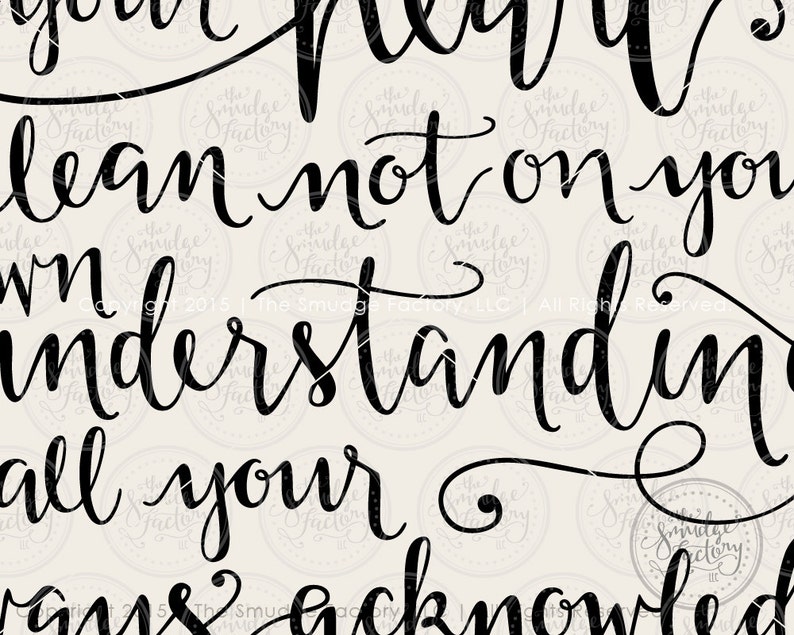 your heart
lean not on you
wn
Copyright 2015 | The Smudge Factory, LLC | All Rights Reserved.
understandin
all your
the Smudge Factory LLC
ways acknowled
Copyright 2015 | The Smudge Factory, LLC | All Rights Reserved.